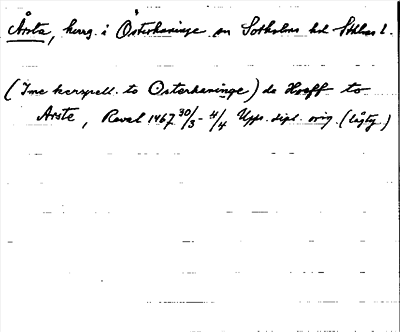 Årsta, herrg. i Österhaninge sn Sotholms hd Sthlms l.
(Ime kerspell. to Osterhaninge) de Hoeff to
Arste, Reval 1467 30/3 - 4/4 Upps. dipl. orig. (lågty)